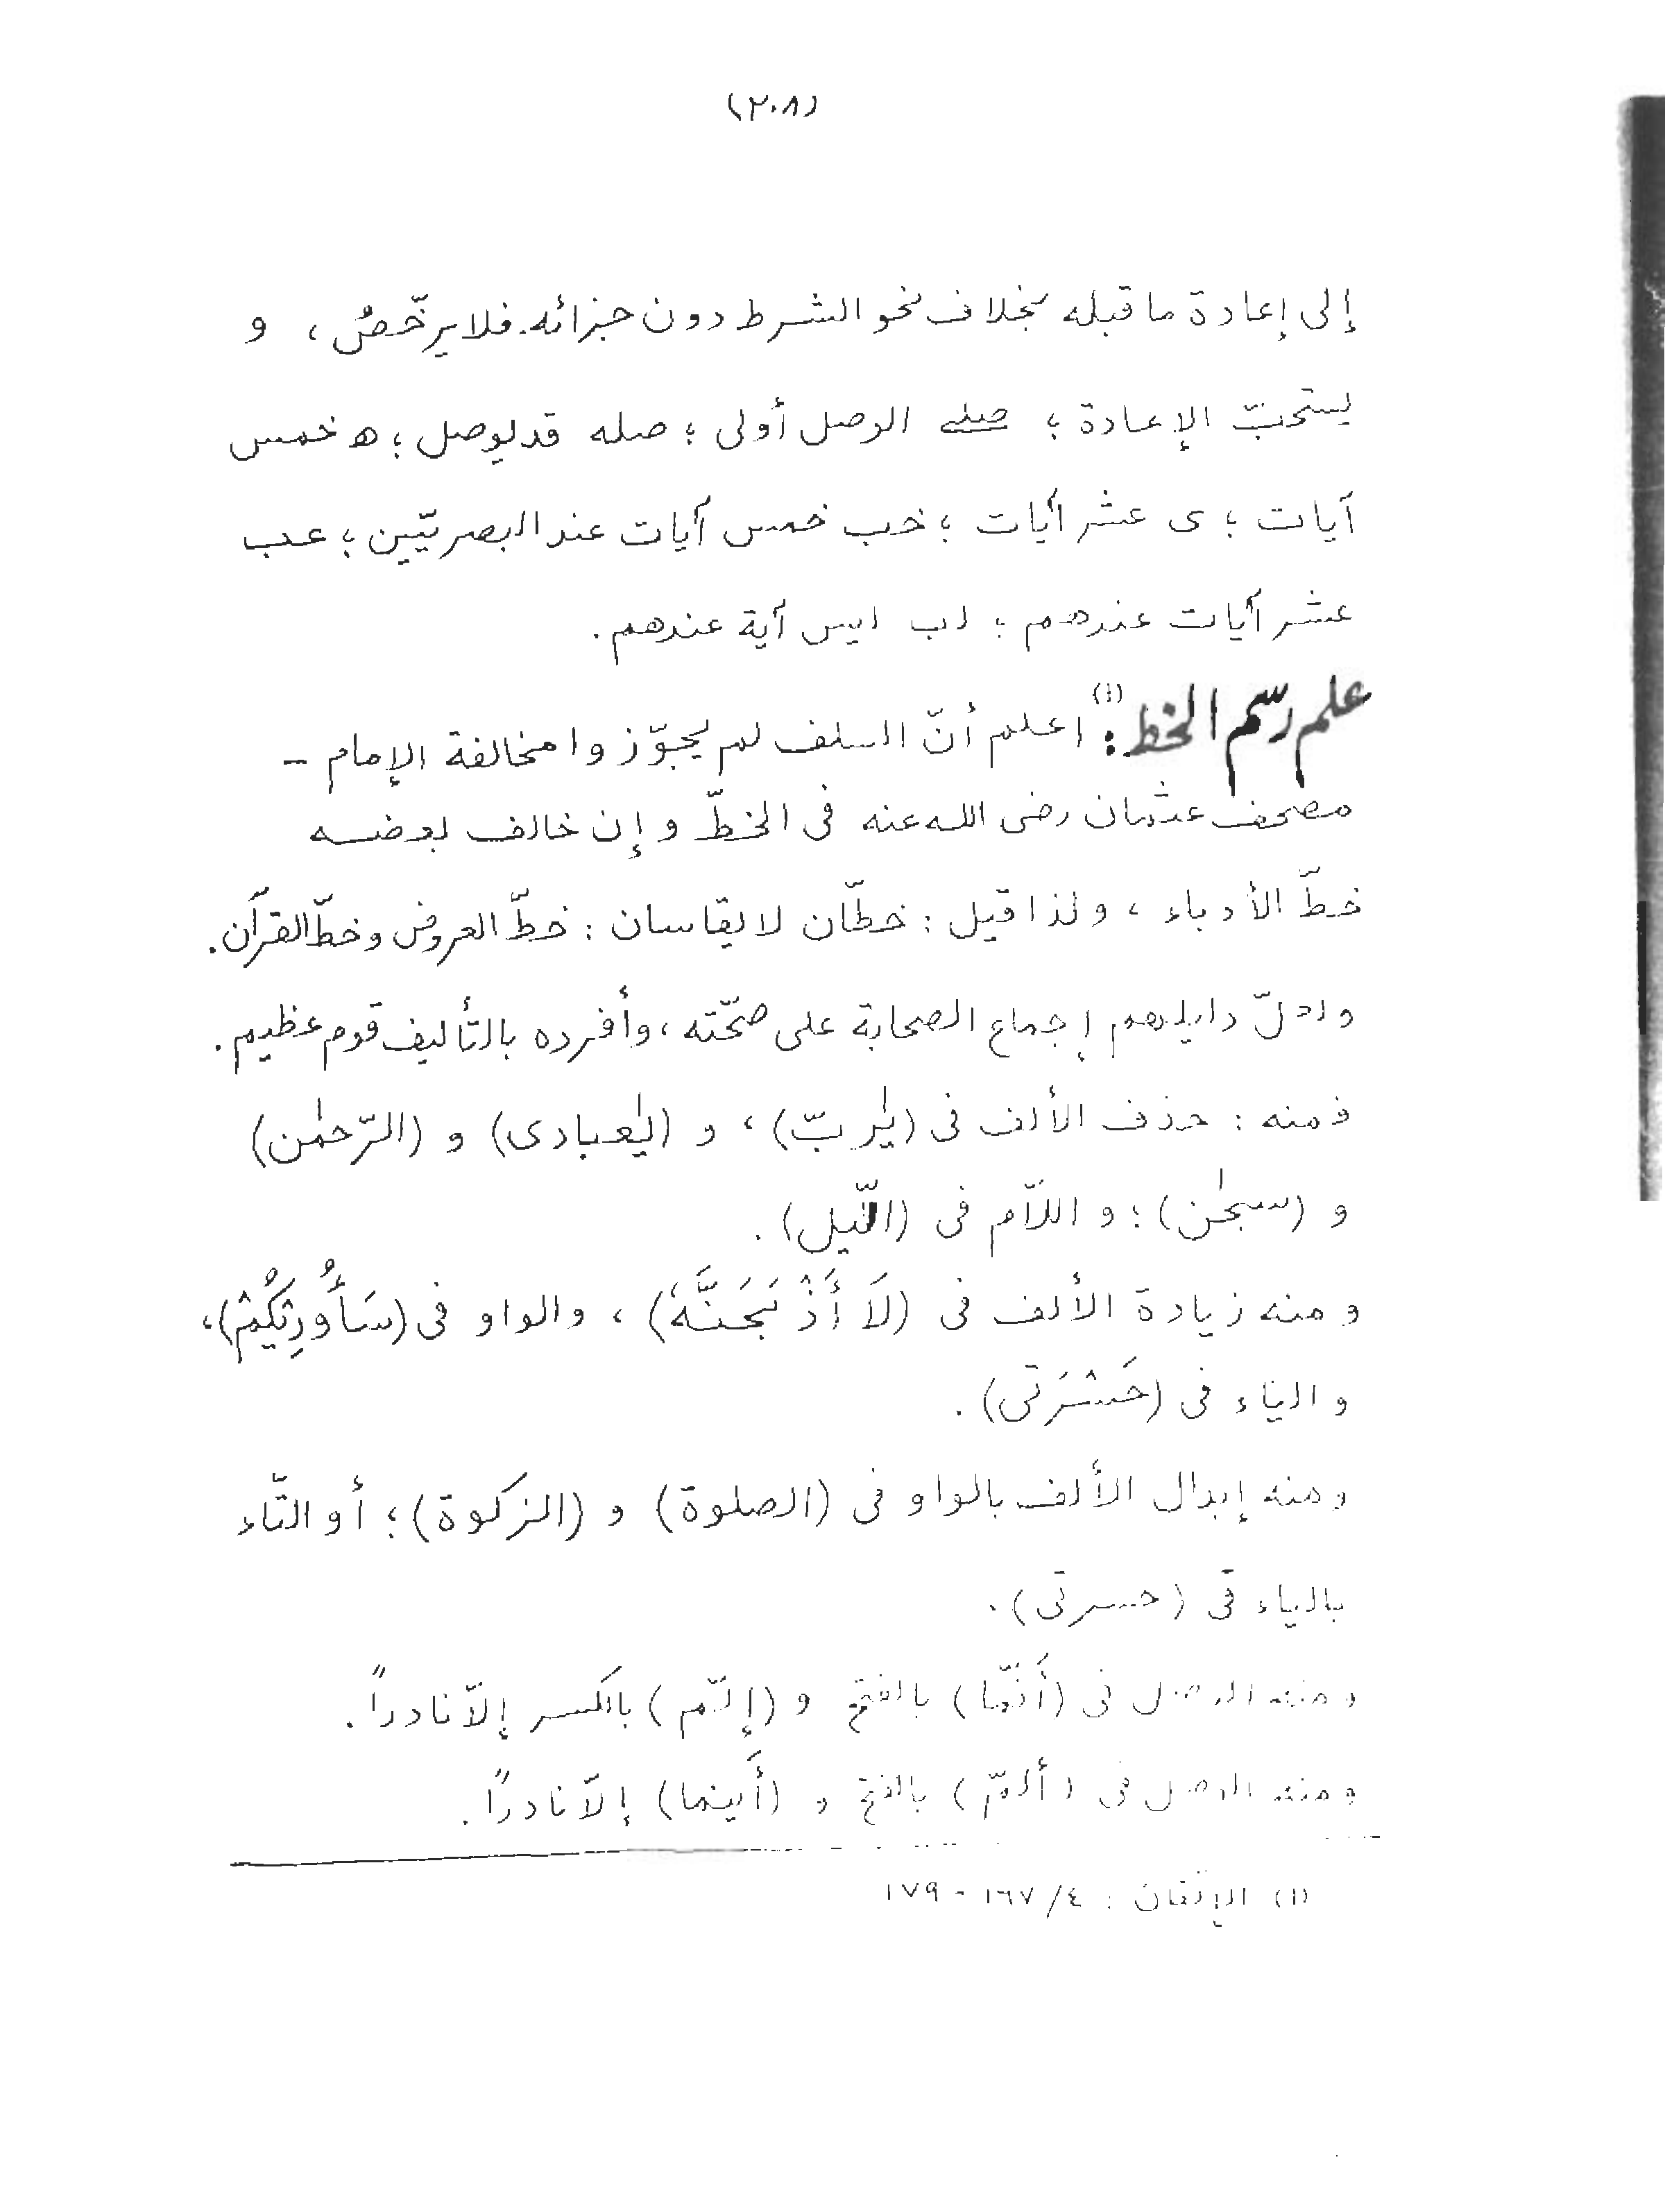 (٢٠٨)
إلى إعادة ما قبله بخلاف نحو الشرط دون جزائه. فلا يرخّصُ ، و
يستحبّ الإعادة ؛ صلے الوصل أولى ؛ صله قد يوصل ؛ ه خمس
آيات ؛ ى عشر آيات ؛ خب خمس آيات عند البصريّين ؛ عب
عشر آيات عندهم ؛ لب ليس آية عندهم .
علم رسّم الخط :(١) اعلم أنّ السلف لم يجوّزوا مخالفة الإمام -
مصحف عثمان رضى الله عنه فى الخطّ وإن خالف بعضه
خطّ الأدباء ، ولذا قيل : خطّان لا يقاسان : خطّ العروض وخطّ القرآن .
ولعلّ دليلهم إجماع الصحابة على صحّته ، وأفرده بالتأليف قوم عظيم .
فمنه : حذف الألف فى (يٰربّ) ، و (يٰعبادى) و (الرّحمٰن)
و (سبحٰن) ؛ و اللاّم فى (الّيل) .
ومنه زيادة الألف فى (لَا أَذْبَحَنَّهُ) ، والواو فى (سَأُورِيْكُمْ) ،
والياء فى (حَسْرَتى) .
ومنه إبدال الألف بالواو فى (الصلوة) و (الزكوة) ؛ أو التّاء
بالياء فى (حسرتى) .
ومنه الوصل فى (أَنّما) بالفتح و (إلّم) بالكسر إلاّ نادراً .
ومنه الوصل فى (ألّم) بالفتح و (أَينما) إلاّ نادراً .
(١) الإتقان : ٤/ ١٦٧ - ١٧٩